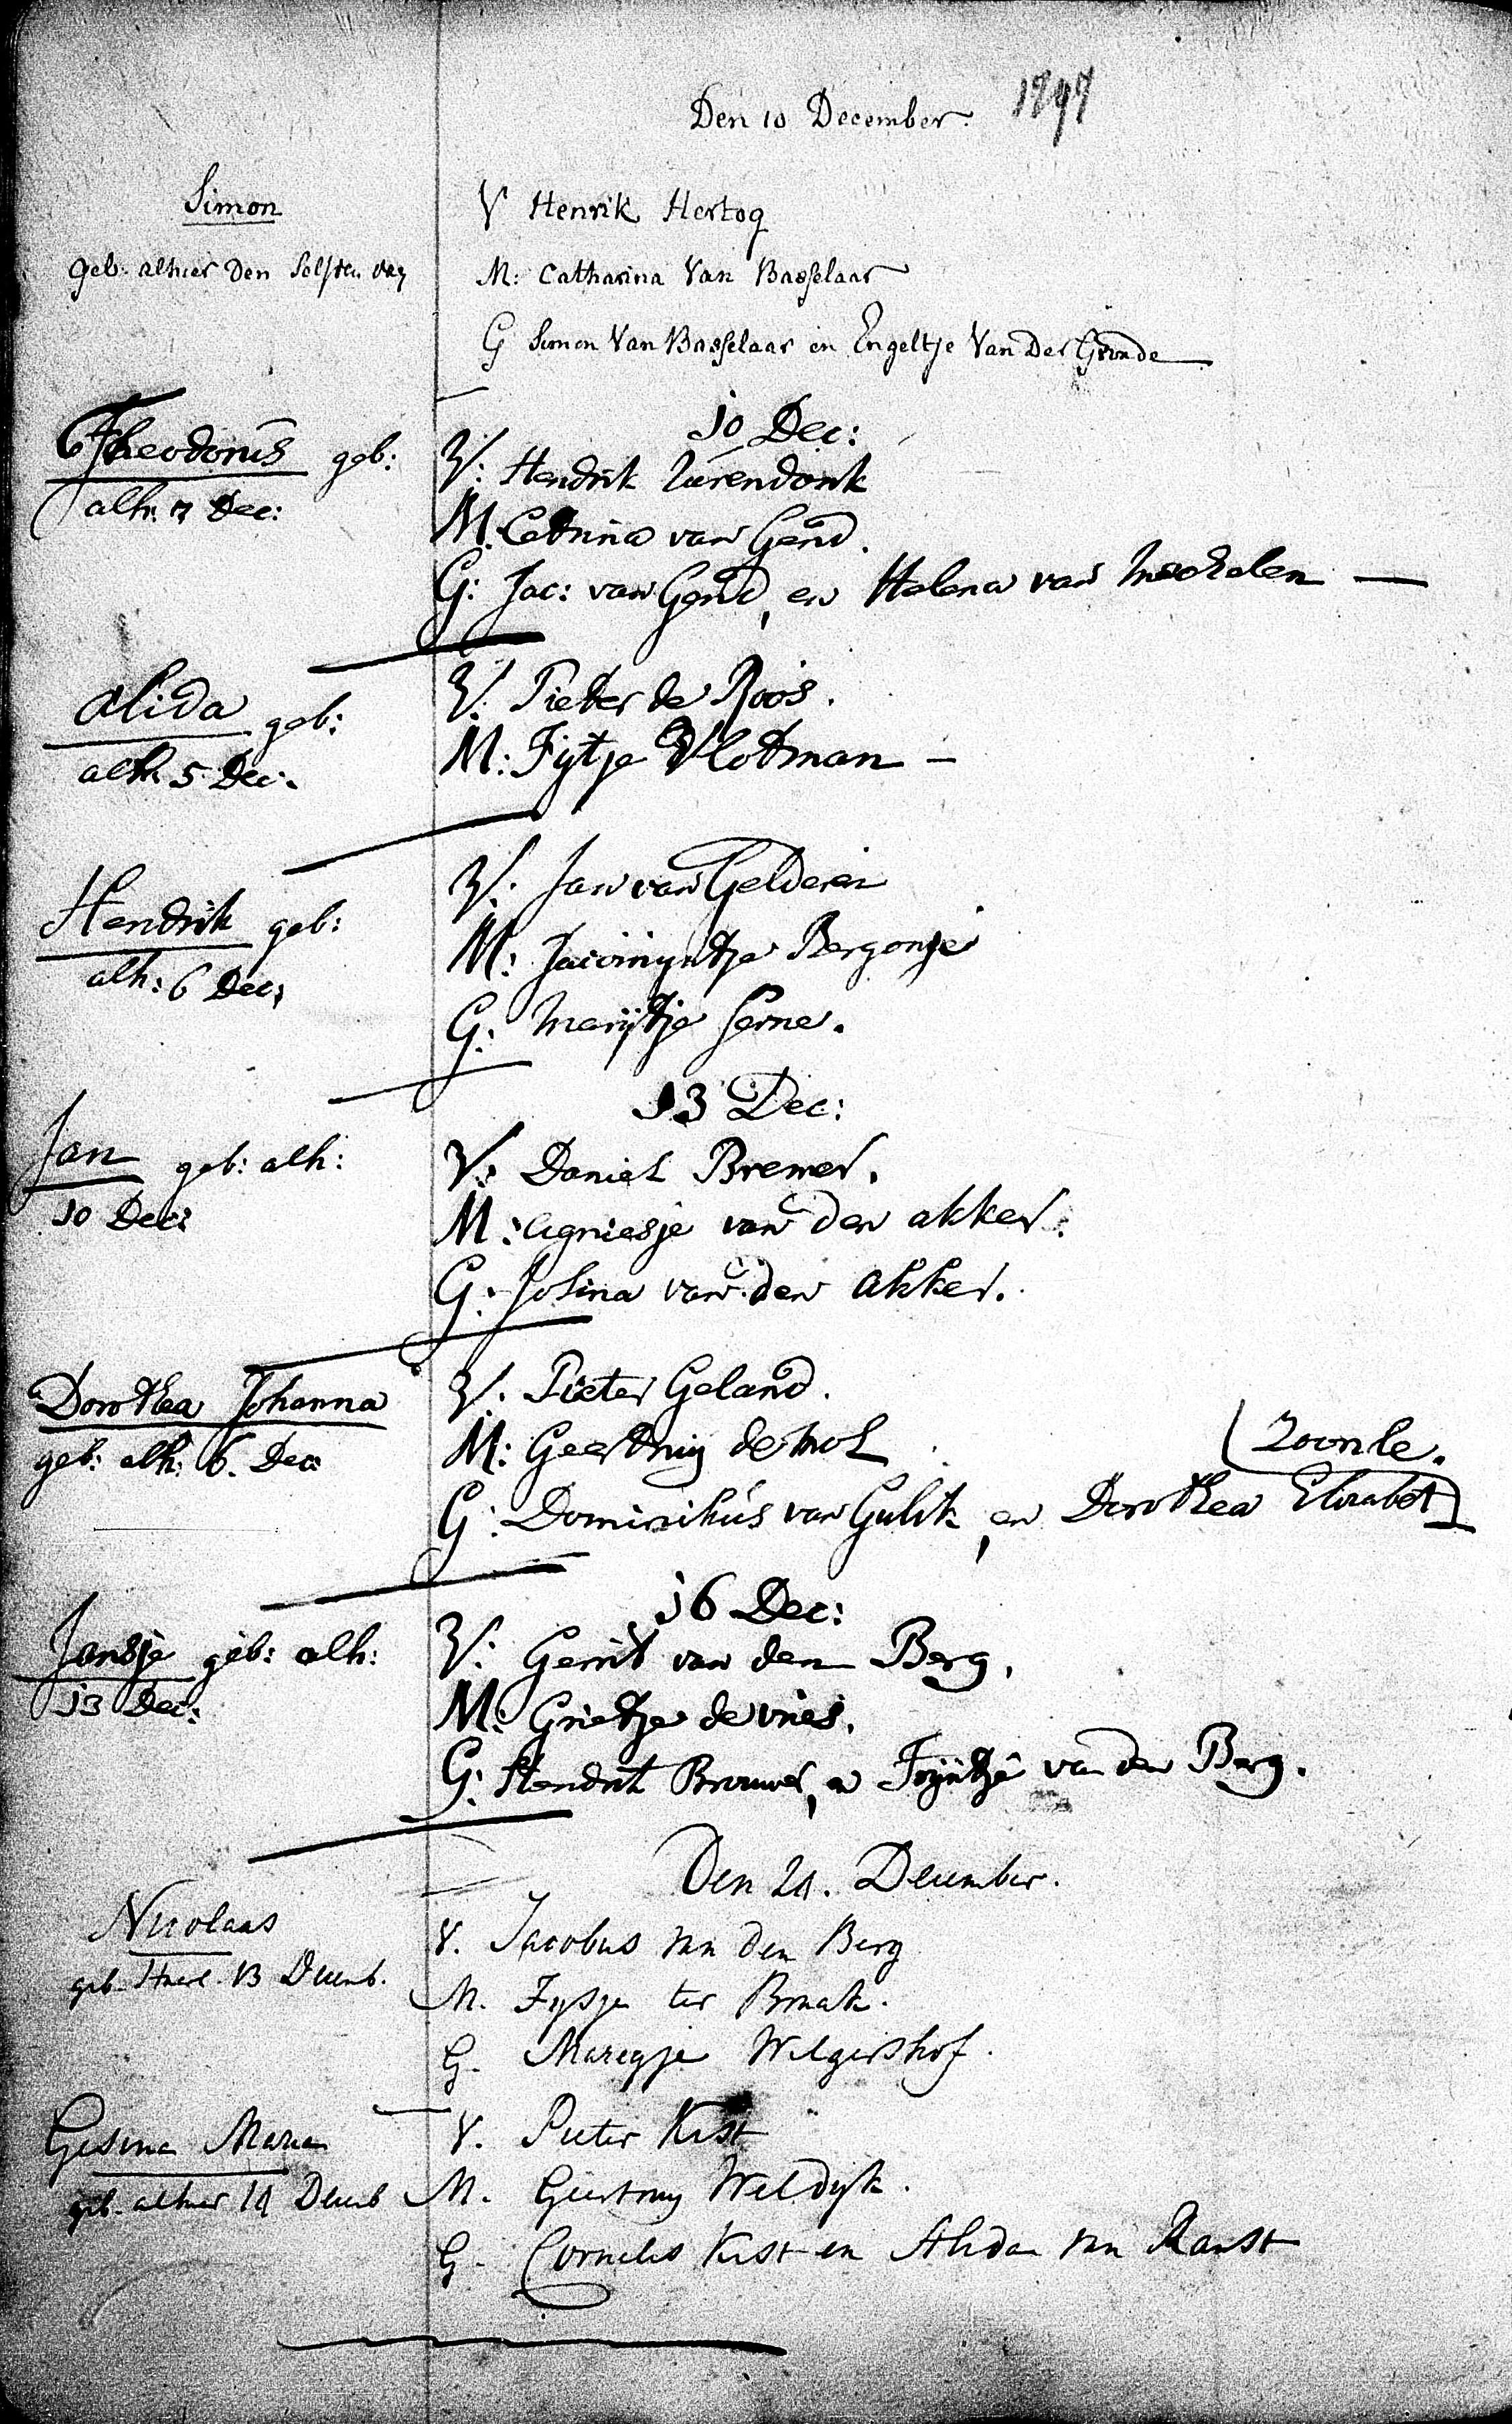 Den 10 December. 1797
Simon
geb: alhier den selfden dag
V Henrik Hertog
M: Catharina Van Basselaar
G Simon Van Basselaar en Engeltje Van Der Gronde
10 Dec:
Theodorus geb:
alh: 7 Dec:
V: Hendrik Zurendonk
M: Catrina van Gend.
G: Jac: van Gend, en Helena van Mechelen
Alida geb:
alh. 5 Dec:
V: Pieter de Roos.
M: Fijtje Vlotman
Hendrik geb:
alh: 6 Dec:
V: Jan van Gelderen
M: Jacomyntje Bergonje
G: Marijtje Ferne.
13 Dec:
Jan geb: alh:
10 Dec:
V: Daniel Bremer.
M: Agniesje van den akker.
G: Josina van den Akker.
Dorothea Johanna
geb: alh: 6. Dec:
V: Pieter Geland.
M: Geertruy de Mol
G: Dominikus van Gulik, en Dorothea Elisabet
Zoonle.
16 Dec:
Jansje geb: alh:
13 Dec:
V: Gerrit van den Berg.
M: Grietje de Vries.
G: Hendrik Brouwer, en Trijntje van den Berg.
Den 21. December.
Nicolaas
geb. Haarl. 13 Decemb.
V. Jacobus van den Berg
M. Fijsje ter Braak.
G. Maregje Wilgershof.
Gesina Maria
geb. alhier 14 Decemb
V. Pieter Kist
M. Geertruy Weldijk.
G. Cornelis Kist en Alida van Ranst